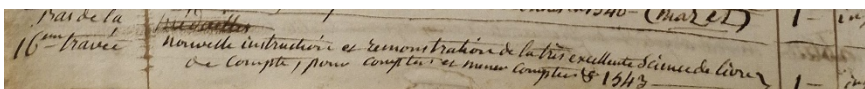 bas de la
1540 (maret) 1—
16em travée
nouvelle instruction et remonstration de la très excellente science de livre
de compte, pour compter et mener comptes 8° 1543 — 1—